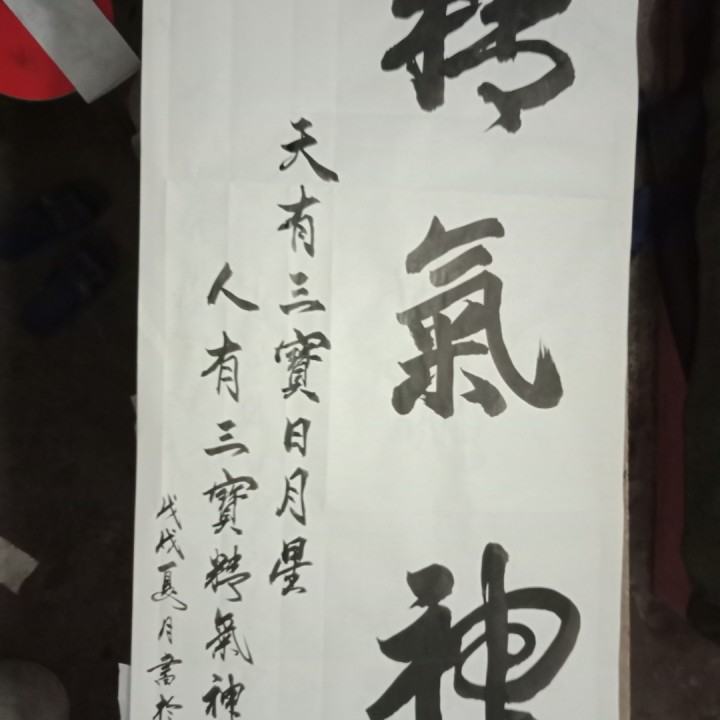 精氣神
天有三寶日月星
人有三寶精氣神
戊戌夏月書於